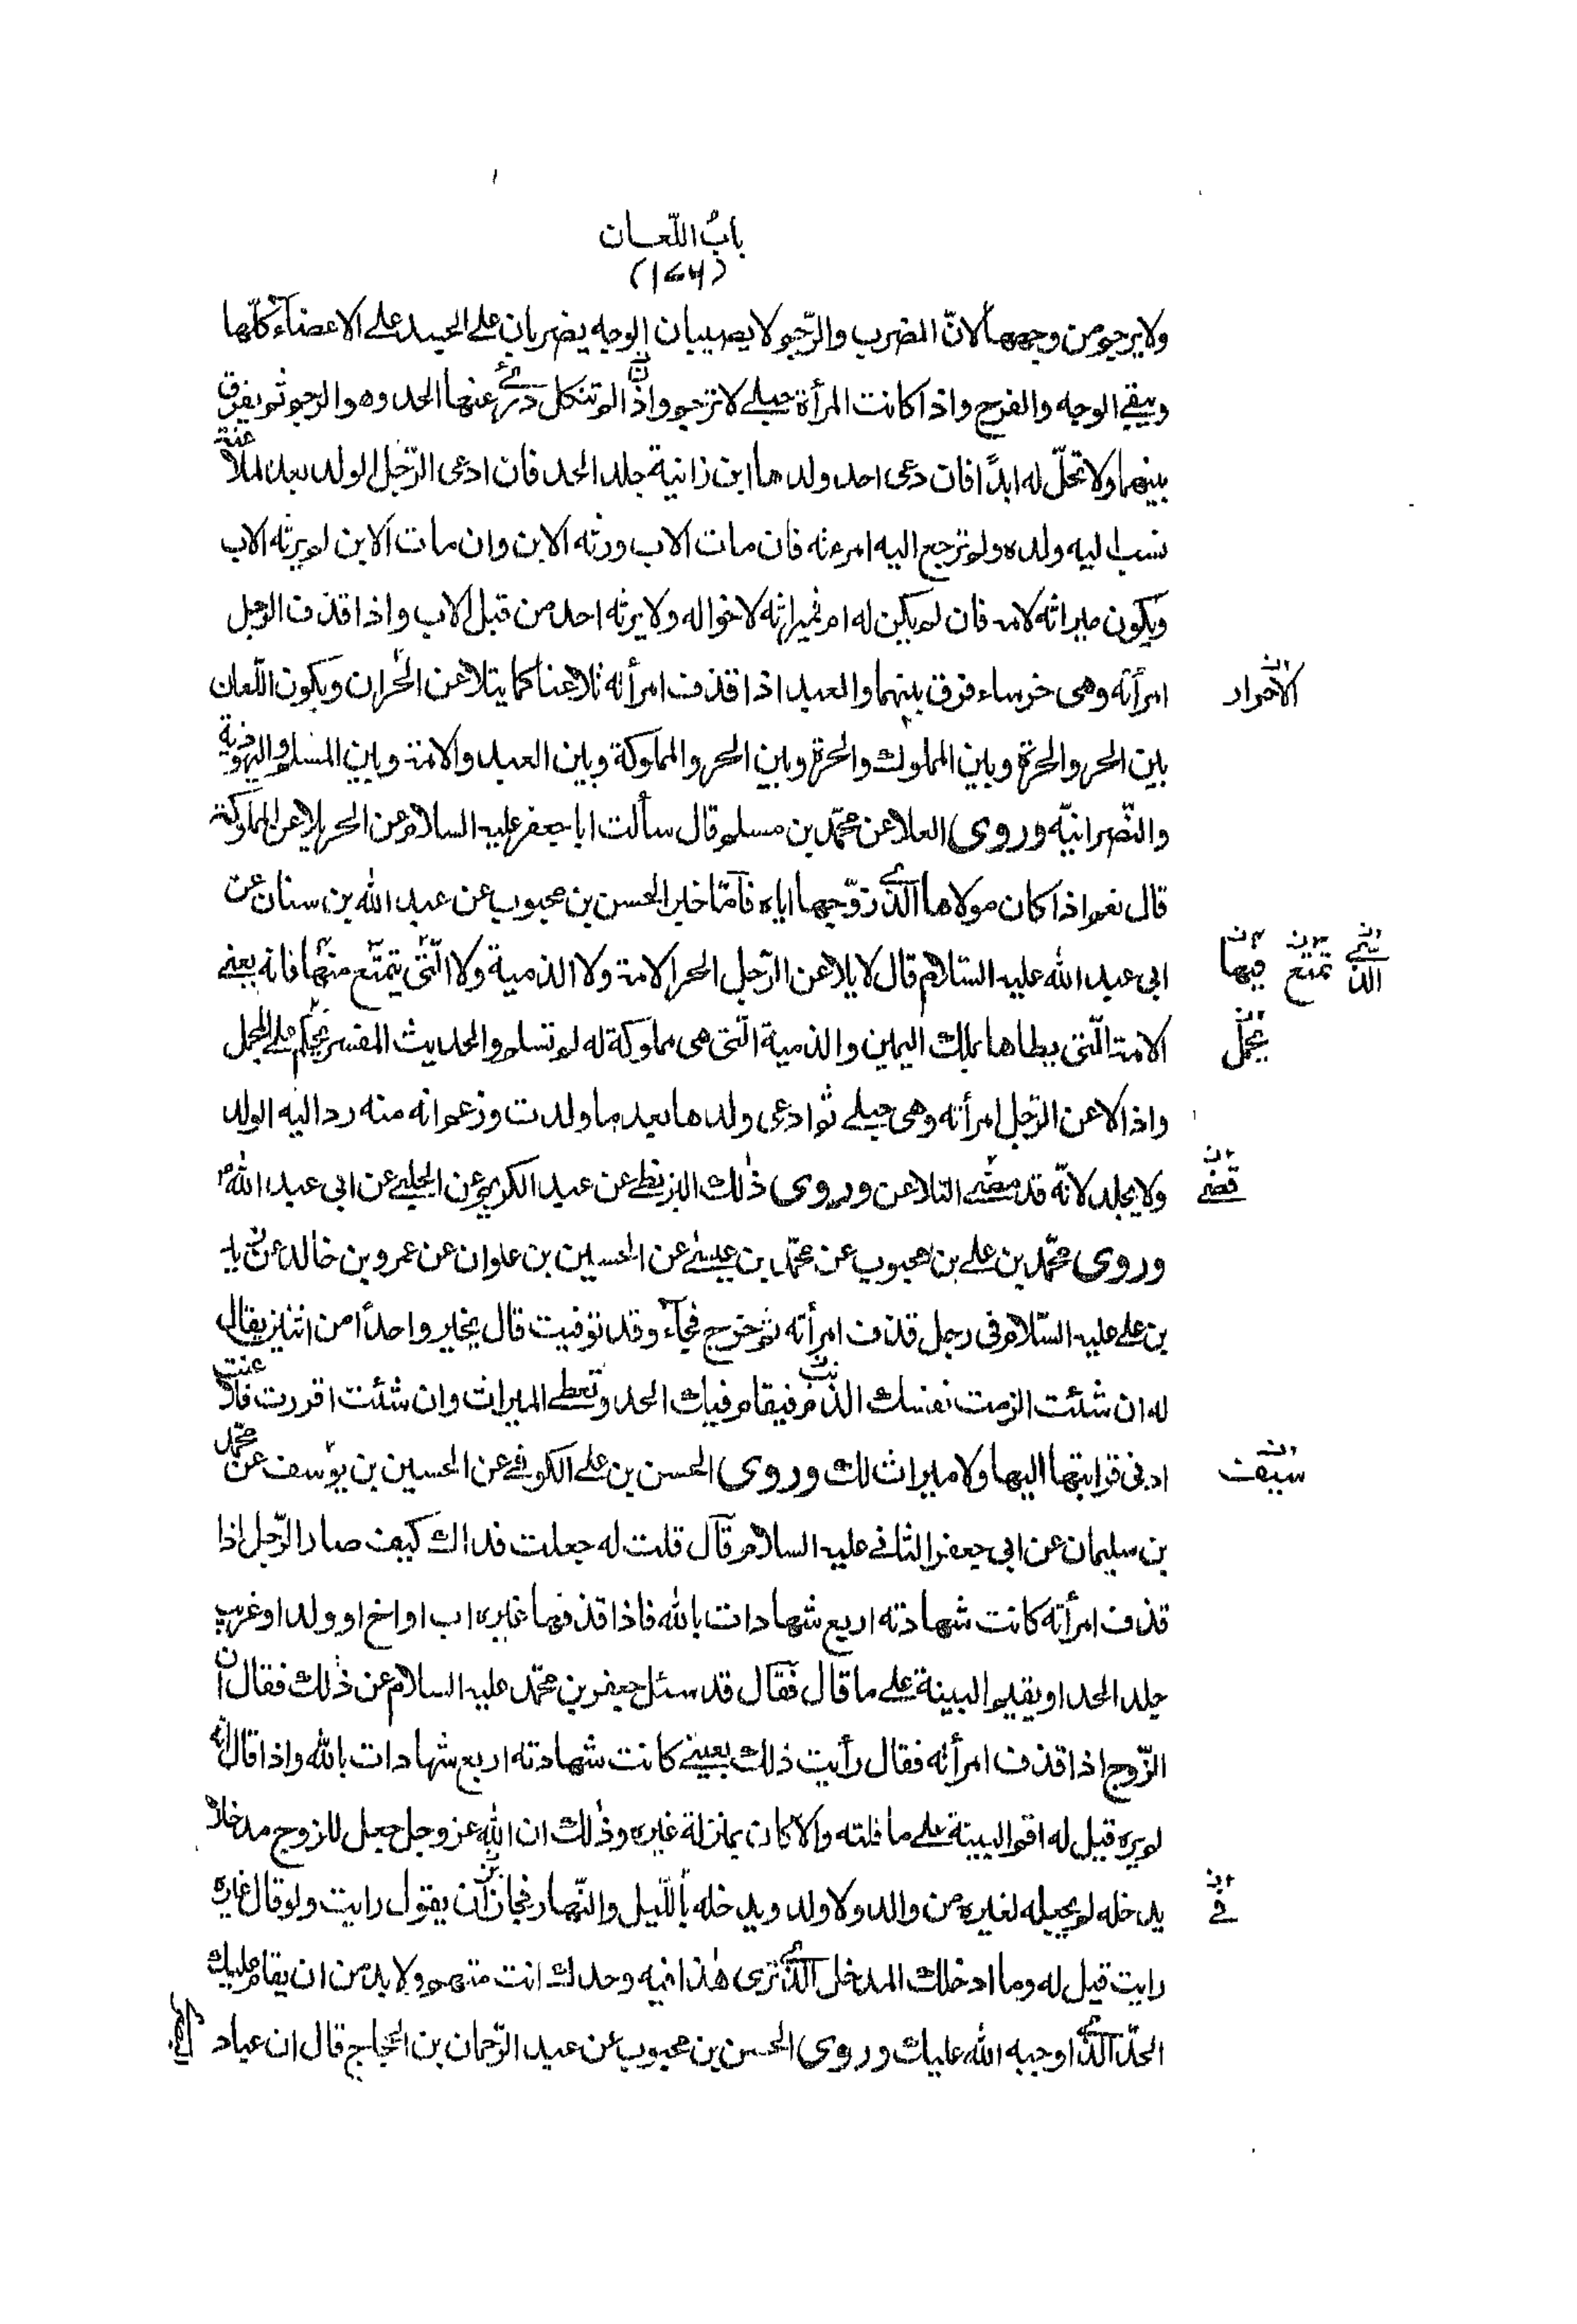 بابُ اللّعـان
(١٧٦)
ولا يرجم من وجهها لانّ الضرب والرّجم لا يصيبان الوجه يضربان على الجسد على الاعضآء كلّها
ويبقى الوجه والفرج واذا كانت المرأة حبلى لا ترجم وان لم تنكل درئ عنها الحد وهو الرجم ثم يفرق
بينهما ولا تحلّ له ابدًا فان دعى احد ولدها ابن زانية جلد الحد فان ادعى الرّجل الولد بعد الملاعنة
نسب اليه ولده ولم ترجع اليه امرءته فان مات الاب ورثه الابن وان مات الابن لم يرثه الاب
ويكون ميراثه لامه فان لم يكن له ام فميراثه لاخواله ولا يرثه احد من قبل الاب واذا قذف الرجل
امرأته وهى خرساء فرق بينهما والعبد اذا قذف امرأته تلاعنا كما يتلاعن الحُران ويكون اللّعان
الاحرار
بين الحر والحرة وبين المملوك والحرة وبين الحر والمملوكة وبين العبد والامة وبين المسلم واليهودية
والنّصرانيّه وروى العلا عن محمّد بن مسلم قال سألت ابا جعفر عليه السلام عن الحر يلاعن المملوكة
قال نعم اذا كان مولاها الّذى زوّجها اياه فامّا خبر الحسن بن محبوب عن عبد الله بن سنان عن
ابى عبد الله عليه السّلام قال لا يلاعن الرّجل الحر الامة ولا الذمية ولا الّتى يتمتّع منها فانه يعنى
الذى تمتع فيها
الامة الّتى يطاها بملك اليمين والذمية الّتى هى مملوكة له لم تسلم والحديث المفسر يحكم على المجمل
يحمل
واذا لاعن الرّجل امرأته وهى حبلى ثم ادعى ولدها بعد ما ولدت وزعم انه منه رد اليه الولد
ولا يجلد لانّه قد مضى التلاعن وروى ذٰلك البزنطى عن عبد الكريم عن الحلبى عن ابى عبد اللّٰه ؑ
قضى
وروى محمّد بن على بن محبوب عن محمّد بن عيسٰى عن الحسين بن علوان عن عمرو بن خالد عن زيد
بن على عليه السّلام فى رجل قذف امرأته ثم خرج فجآء وقد توفيت قال يخير واحدًا من اثنين يقال
له ان شئت الزمت نفسك الذنب فيقام فيك الحد وتعطى الميراث وان شئت اقررت فلاعنت
ادنى قرابتها اليها ولا ميراث لك وروى الحسن بن على الكوفى عن الحسين بن يوسف عن محمّد
سيف
بن سليمان عن ابى جعفر الثانى عليه السلام قال قلت له جعلت فداك كيف صار الرّجل اذا
قذف امرأته كانت شهادته اربع شهادات بالله فاذا قذفها غيره اب او اخ او ولد او غريب
جلد الحد او يقيم البينة على ما قال فقال قد سئل جعفر بن محمّد عليه السلام عن ذٰلك فقال ان
الزّوج اذا قذف امرأته فقال رأيت ذلك بعينى كانت شهادته اربع شهادات بالله واذا قال انه
لم يره قيل له اقم البينة على ما قلته والا كان بمنزلة غيره وذٰلك ان الله عز وجل جعل للزوج مدخلا
يدخله لم يجعله لغيره من والد ولا ولد ويدخله بالّليل والنّهار فجائز ان يقول رايت ولو قال غيره
فى
رايت قيل له وما ادخلك المدخل الّذى ترى هٰذا فيه وحدك انت متهم ولا بد من ان يقام عليك
الحدّ الّذى اوجبه الله عليك وروى الحسن بن محبوب عن عبد الرّحمان بن الحجاج قال ان عباد